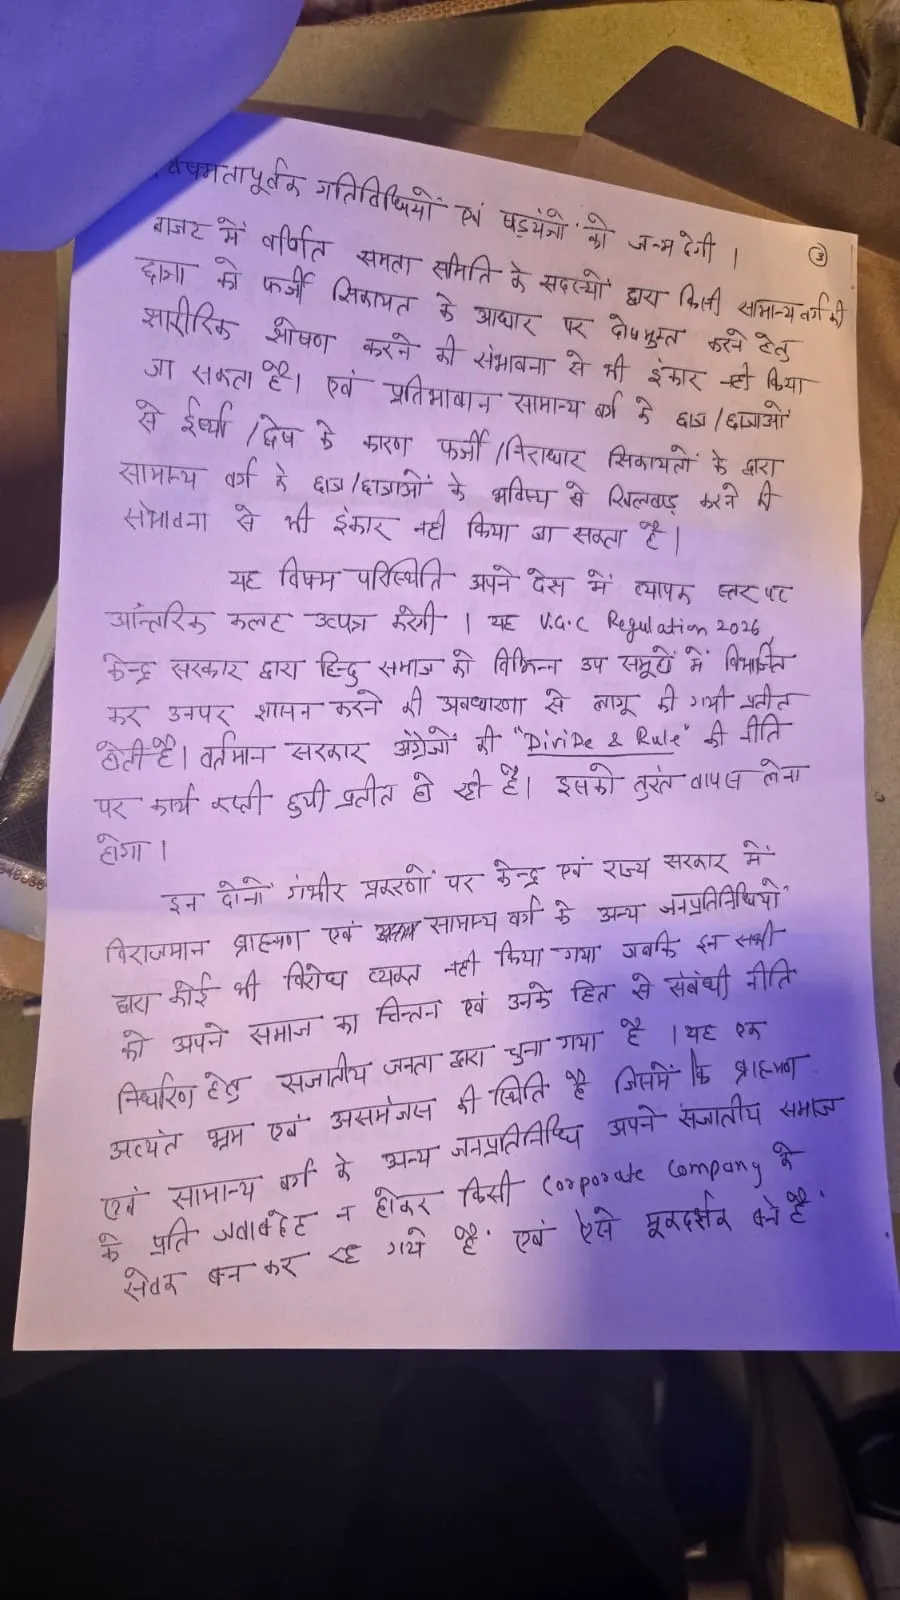 विषमतापूर्वक गतिविधियों एवं षड़यंत्रों को जन्म देगी ।
3
गजट में वर्णित समता समिति के सदस्यों द्वारा किसी सामान्य वर्ग की
छात्रा को फर्जी सिकायत के आधार पर दोषमुक्त करने हेतु
शारीरिक शोषण करने की संभावना से भी इंकार नही किया
जा सकता है। एवं प्रतिभावान सामान्य वर्ग के छात्र/छात्राओं
से ईर्ष्या/द्वेष के कारण फर्जी/निराधार सिकायतों के द्वारा
सामान्य वर्ग के छात्र/छात्राओं के भविष्य से खिलवाड़ करने की
संभावना से भी इंकार नही किया जा सकता है।
यह विषम परिस्थिति अपने देस में व्यापक स्तर पर
आंन्तरिक कलह उत्पन्न करेगी । यह U.G.C Regulation 2026,
केन्द्र सरकार द्वारा हिन्दु समाज को विभिन्न उप समूहों में विभाजित
कर उनपर शासन करने की अवधारणा से लागू की गयी प्रतीत
होती है। वर्तमान सरकार अंग्रेजों की "DiviDe & Rule" की नीति
पर कार्य करती हुयी प्रतीत हो रही है। इसको तुरंत वापस लेना
होगा ।
इन दोनों गंभीर प्रकरणों पर केन्द्र एवं राज्य सरकार में
विराजमान ब्राह्मण एवं सामान्य वर्ग के अन्य जनप्रतिनिधियों
द्वारा कोई भी विरोध व्यक्त नही किया गया जबकि इन सभी
को अपने समाज का चिन्तन एवं उनके हित से संबंधी नीति
निर्धारण हेतु सजातीय जनता द्वारा चुना गया है । यह एक
अत्यंत भ्रम एवं असमंजस की स्थिति है जिसमें कि ब्राह्मण
एवं सामान्य वर्ग के अन्य जनप्रतिनिधि अपने सजातीय समाज
के प्रति जवाबदेह न होकर किसी Corporate Company के
सेवक बन कर रह गये है एवं ऐसे मूकदर्शक बने है